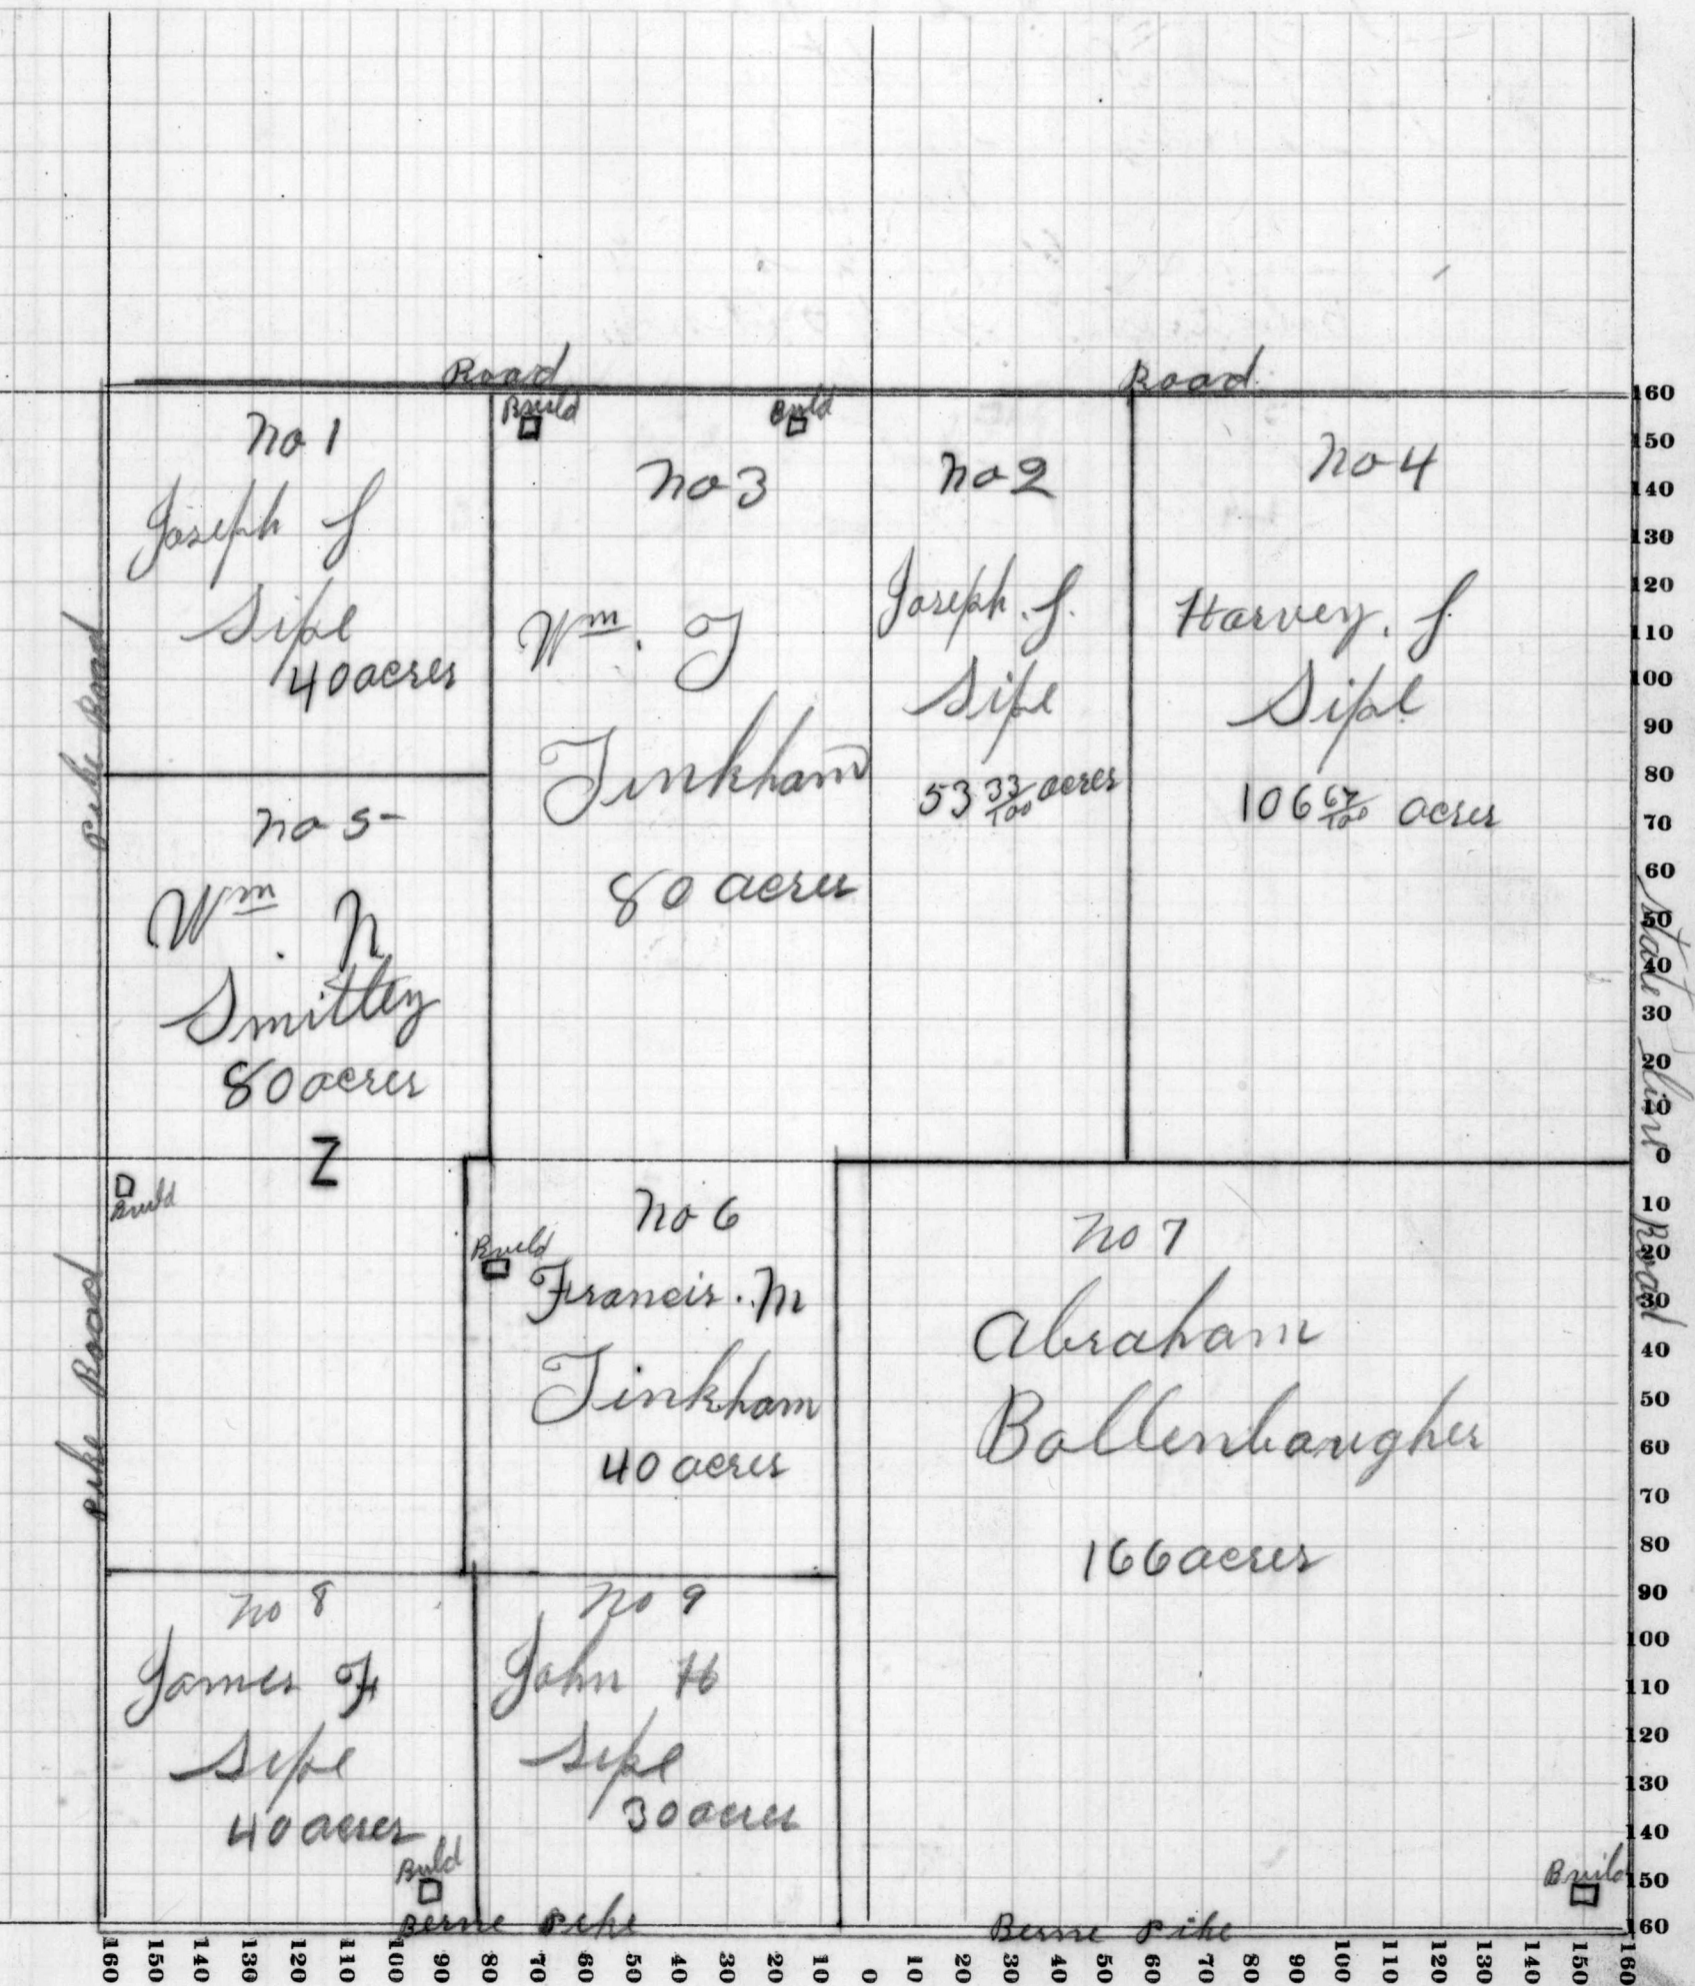 Road
Road
Build
Build
No 1
Joseph S
Sipe
40 acres
No 3
Wm. T
Tinkham
80 acres
No 2
Joseph. S.
Sipe
53 33/100 acres
No 4
Harvey. S.
Sipe
106 67/100 acres
Pike Road
No 5
Wm. N
Smitley
80 acres
Z
Build
Build
No 6
Francis. M
Tinkham
40 acres
No 7
Abraham
Bollenbaugher
166 acres
Pike Road
State Line Road
No 8
James F
Sipe
40 acres
Build
No 9
John H
Sipe
30 acres
Build
Berne Pike
Berne Pike
160
150
140
130
120
110
100
90
80
70
60
50
40
30
20
10
0
10
20
30
40
50
60
70
80
90
100
110
120
130
140
150
160
160 150 140 130 120 110 100 90 80 70 60 50 40 30 20 10 0 10 20 30 40 50 60 70 80 90 100 110 120 130 140 150 160